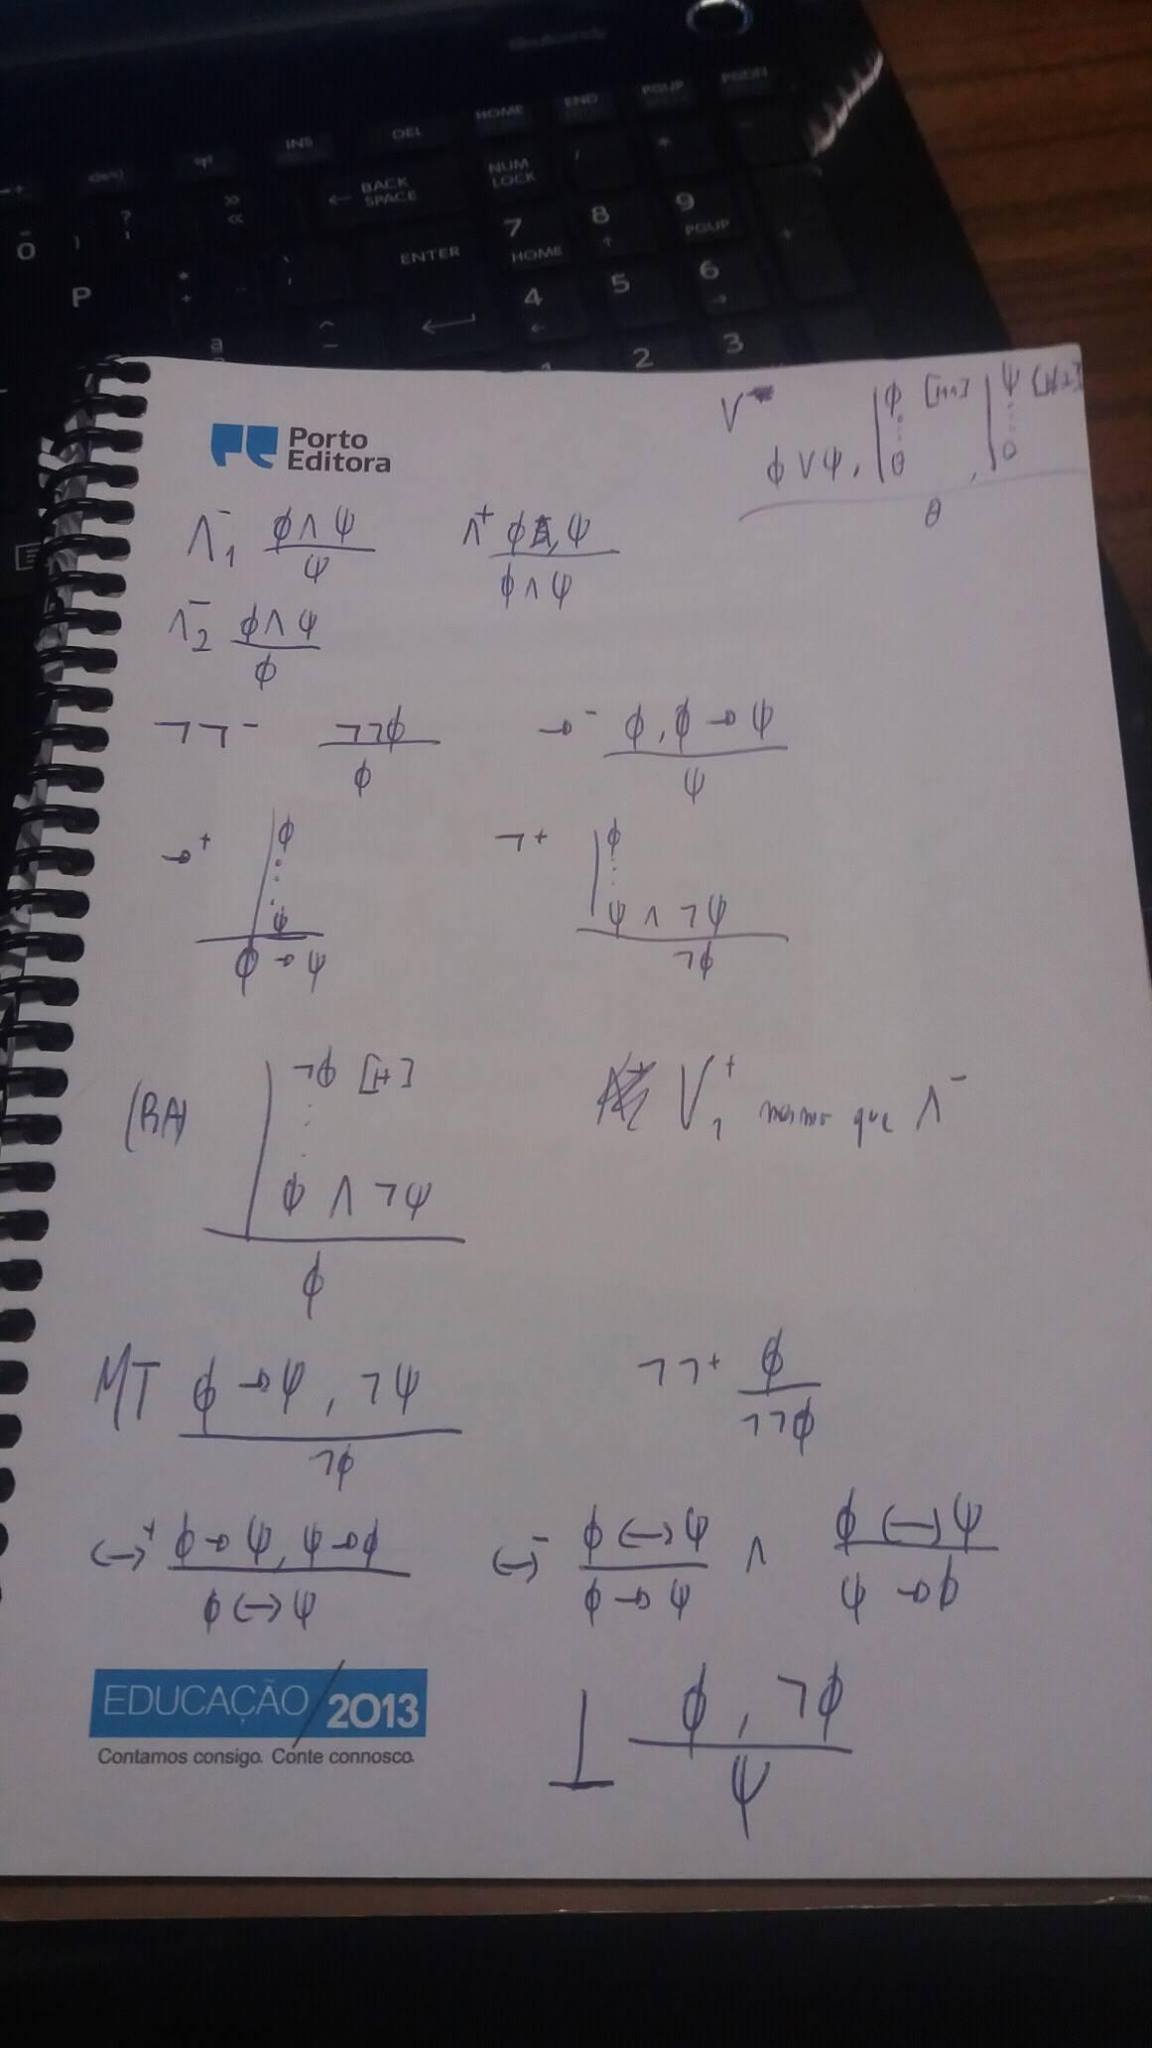 INS
DEL
HOME
END
PGUP
PGDN
BACK
SPACE
NUM
LOCK
7
8
9
HOME
PGUP
ENTER
0
P
4
5
6
2
3
Porto
Editora
V⁻
ϕ ∨ ψ, | ϕ [H1] ⋮ θ , | ψ [H2] ⋮ θ
θ
∧⁻₁ ϕ ∧ ψ
ψ
∧⁺ ϕ, ψ
ϕ ∧ ψ
∧⁻₂ ϕ ∧ ψ
ϕ
¬¬⁻ ¬¬ϕ
ϕ
→⁻ ϕ, ϕ → ψ
ψ
→⁺ | ϕ
⋮
ψ
ϕ → ψ
¬⁺ | ϕ
⋮
ψ ∧ ¬ψ
¬ϕ
(RA) | ¬ϕ [H]
⋮
ϕ ∧ ¬ψ
ϕ
V₁⁺ mesmo que ∧⁻
MT ϕ → ψ, ¬ψ
¬ϕ
¬¬⁺ ϕ
¬¬ϕ
↔⁺ ϕ → ψ, ψ → ϕ
ϕ ↔ ψ
↔⁻ ϕ ↔ ψ ∧ ϕ ↔ ψ
ϕ → ψ ψ → ϕ
EDUCAÇÃO/2013
Contamos consigo. Conte connosco.
⊥ ϕ, ¬ϕ
ψ